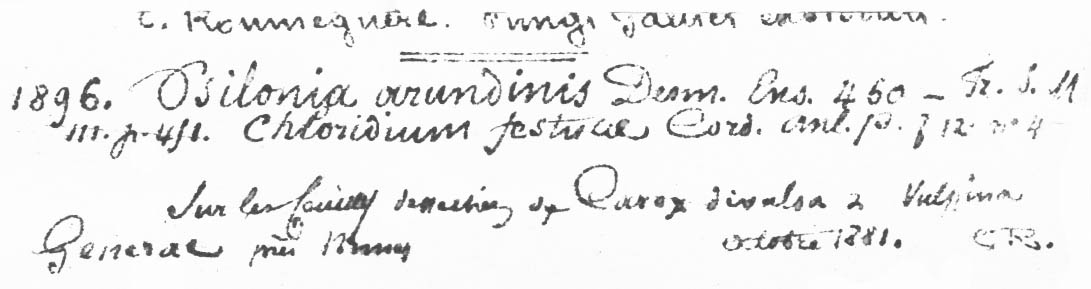 C. Roumeguère. Fungi Gallici exsiccati.
1896. Psilonia arundinis Desm. Exs. 460 – Fr. S. M
III. p. 451. Chloridium festucae Cord. anl. p. f 12 nº 4
Sur les feuilles desséchées de Carex divulsa & Vulpina
Generac près octobre 1881. C.R.